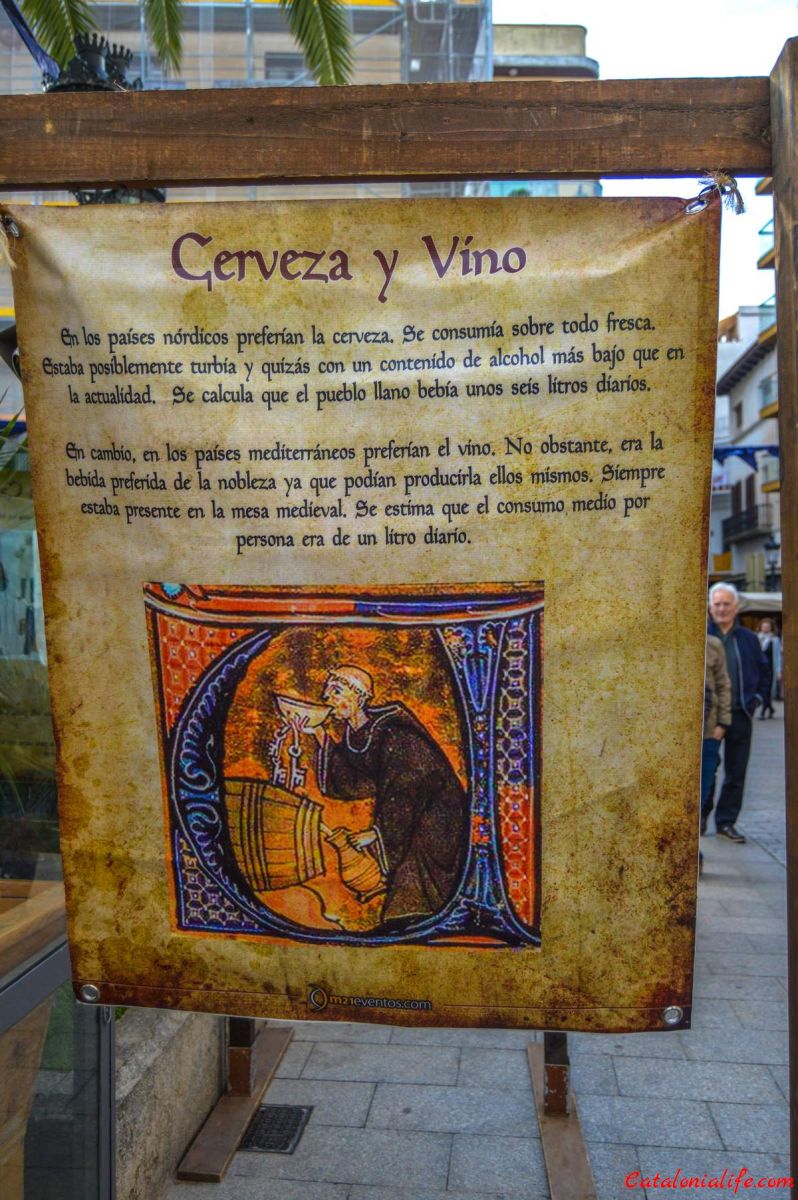 Cerveza y Vino
En los países nórdicos preferían la cerveza. Se consumía sobre todo fresca.
Estaba posiblemente turbia y quizás con un contenido de alcohol más bajo que en
la actualidad. Se calcula que el pueblo llano bebía unos seis litros diarios.
En cambio, en los países mediterráneos preferían el vino. No obstante, era la
bebida preferida de la nobleza ya que podían producirla ellos mismos. Siempre
estaba presente en la mesa medieval. Se estima que el consumo medio por
persona era de un litro diario.
m21eventos.com
Catalonialife.com